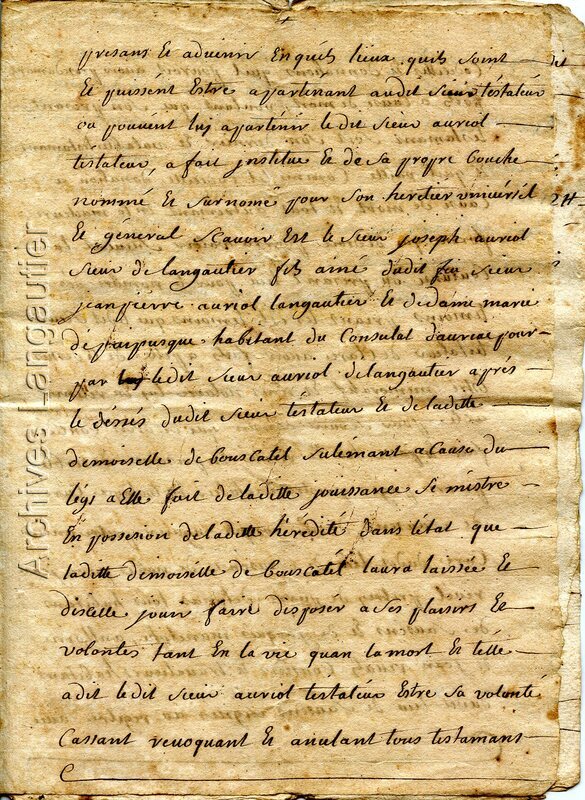 presans Et advenir En quels lieux quils soint
Et puissent Estre apartenant audit sieur téstateur
ou pouvent luy apartenir ledit sieur auriol
téstateur, a fait institue Et de sa propre bouche
nommé Et surnomé pour son heritier universél
Et géneral scavoir Est le sieur joseph auriol
sieur de langautier fils ainé dudit feu sieur
jean pierre auriol langautier Et de dame marie
de puipusque habitant du Consulat dauriac pour
par ledit sieur auriol de langautier aprés
le désés dudit sieur téstateur Et de laditte
demoiselle de bouscatel sulémant a Cause du
légs a Elle fait de laditte jouissance se mettre
En possesion de laditte hérédité dans létat que
laditte demoiselle de bouscatél laura laissée Et
dicelle jouir faire disposér a ses plaisirs Et
volontés tant En la vie quan la mort Et télle
a dit ledit sieur auriol téstateur Estre sa volonté
Cassant revoquant Et anulant tous testamans
Archives Langautier